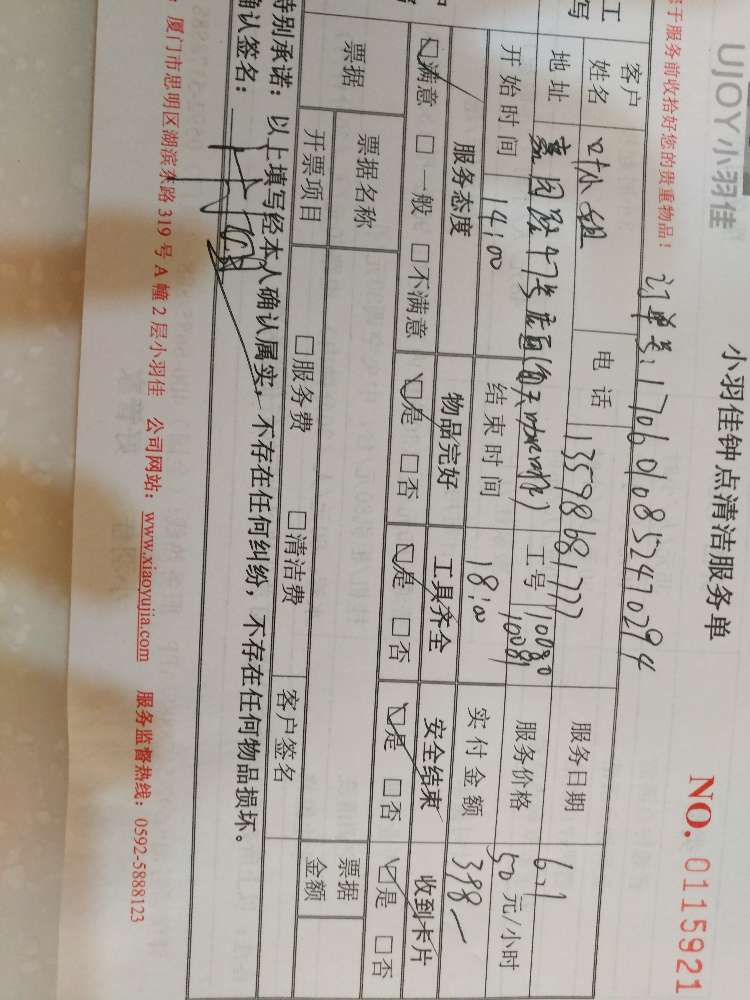 UJOY小羽佳
小羽佳钟点清洁服务单
NO. 0115921
于服务前收拾好您的贵重物品!
订单号:1706010852470294
客户姓名 叶小姐 电话 13598681777 服务日期 6.1
地址 嘉园路47号店面 工号 10080 10081 服务价格 50元/小时
开始时间 14:00 结束时间 18:00 实付金额 398
服务态度 物品完好 工具齐全 安全结束 收到卡片
☑满意 □一般 □不满意 ☑是 □否 ☑是 □否 ☑是 □否 ☑是 □否
票据 票据名称 票据金额
开票项目 □服务费 □清洁费 客户签名
特别承诺:以上填写经本人确认属实,不存在任何纠纷,不存在任何物品损坏。
确认签名:
厦门市思明区湖滨东路319号A幢2层小羽佳 公司网站:www.xiaoyujia.com 服务监督热线:0592-5888123